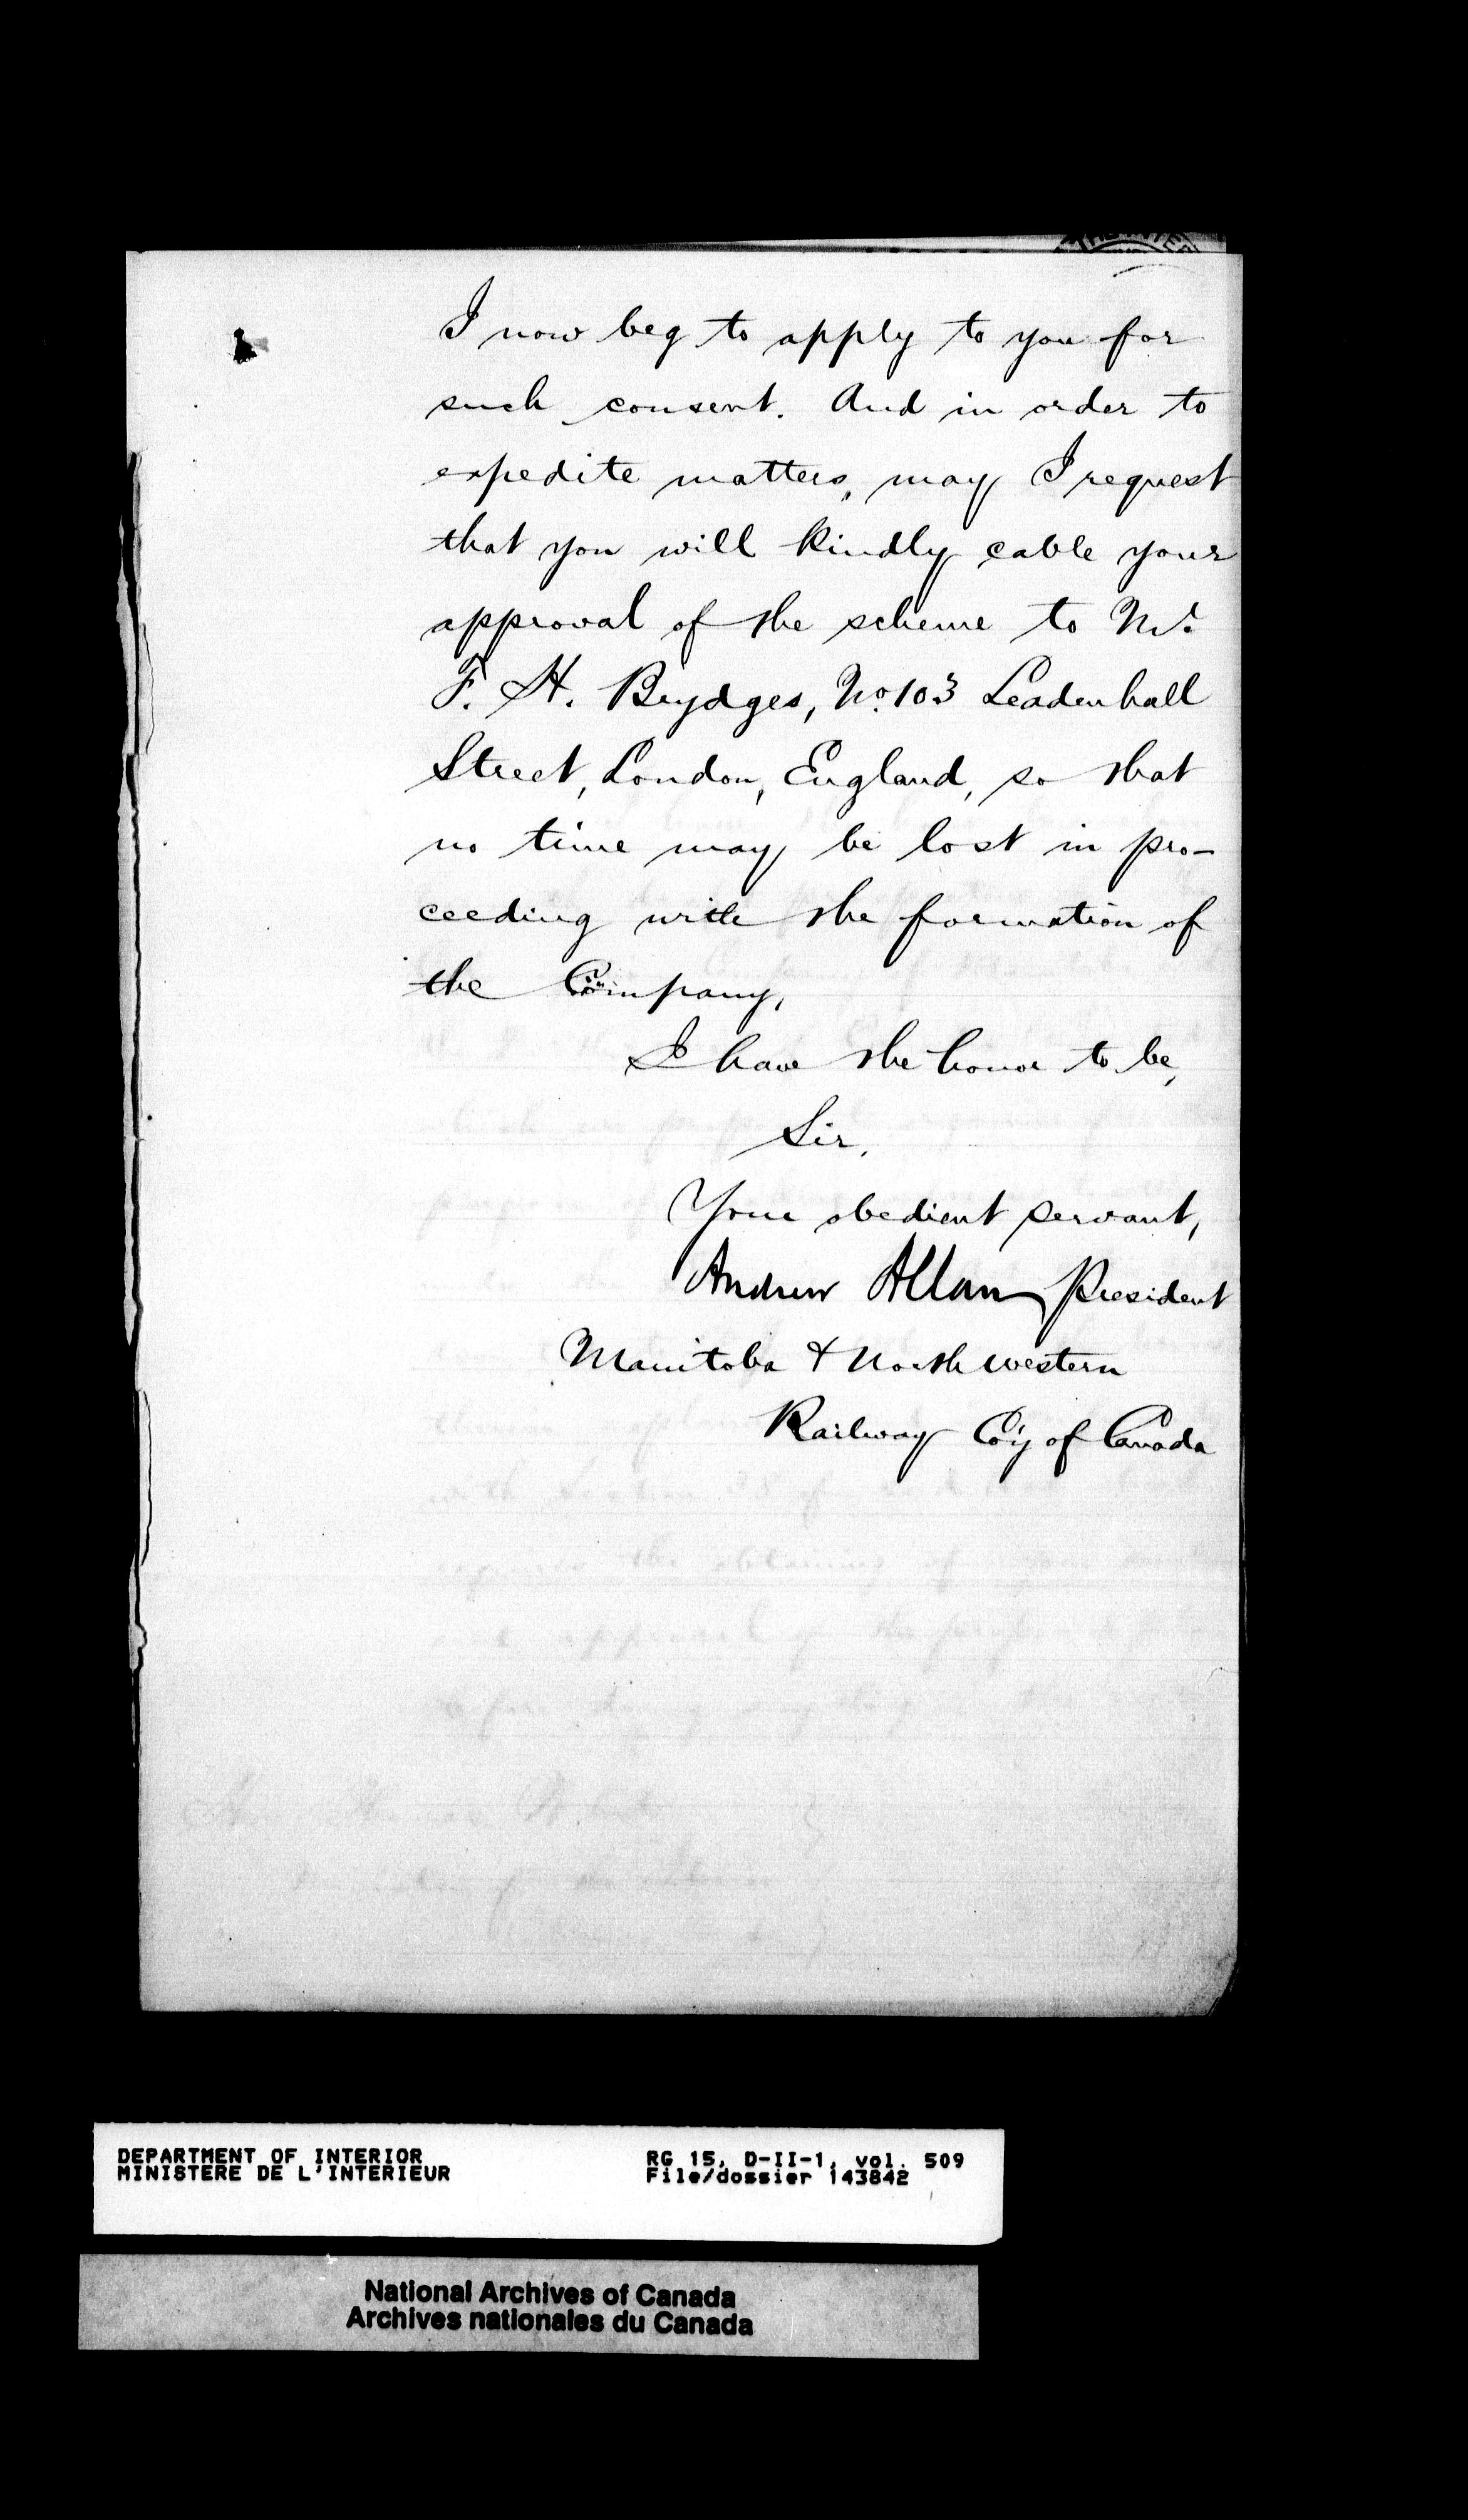 I now beg to apply to you for
such consent. And in order to
expedite matters, may I request
that you will kindly cable your
approval of the scheme to Mr.
F. H. Brydges, No. 103 Leadenhall
Street, London, England, so that
no time may be lost in pro-
ceeding with the formation of
the Company,
I have the honor to be,
Sir,
Your obedient servant,
Andrew Allan President
Manitoba & North Western
Railway Co'y of Canada
DEPARTMENT OF INTERIOR
MINISTERE DE L'INTERIEUR
RG 15, D-II-1, vol. 509
File/dossier 143842
National Archives of Canada
Archives nationales du Canada